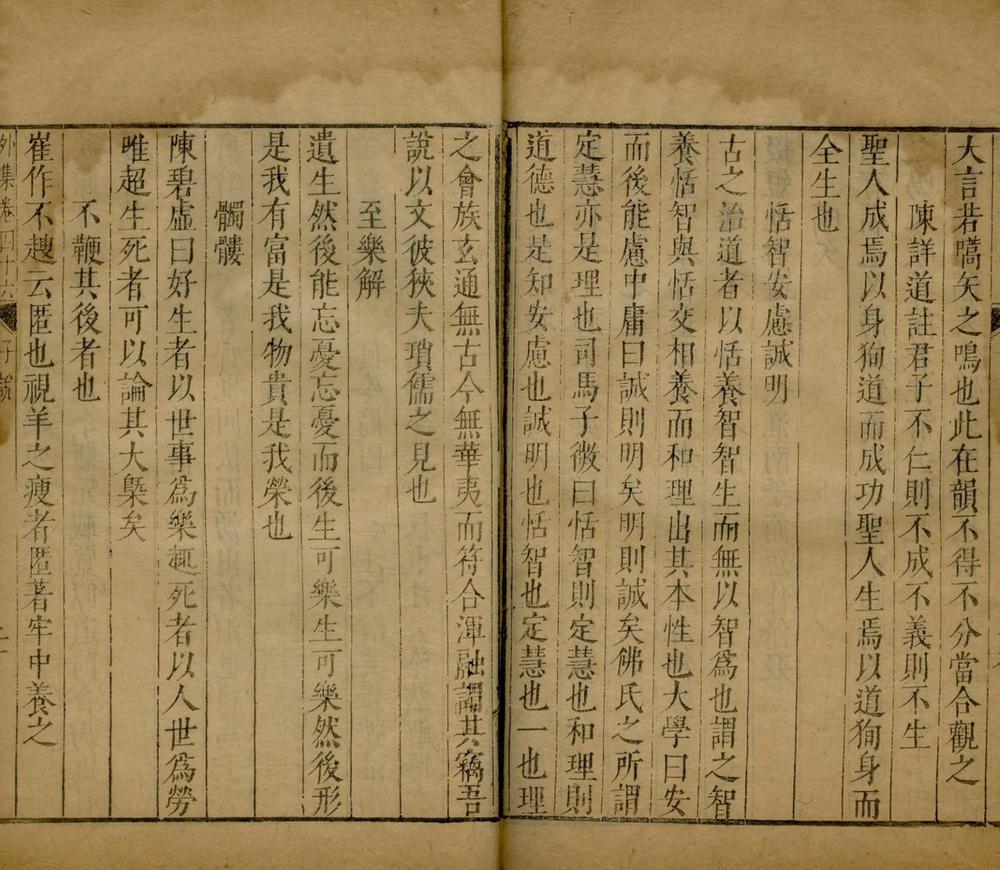 大言若嚆矢之鳴也此在韻不得不分當合觀之
陳詳道註君子不仁則不成不義則不生
聖人成焉以身狥道而成功聖人生焉以道狥身而
全生也
恬智安慮誠明
古之治道者以恬養智智生而無以智為也謂之智
養恬智與恬交相養而和理出其本性也大學曰安
而後能慮中庸曰誠則明矣明則誠矣佛氏之所謂
定慧亦是理也司馬子微曰恬智則定慧也和理則
道德也是知安慮也誠明也恬智也定慧也一也理
之會族玄通無古今無華夷而符合渾融謂其竊吾
說以文彼狹夫瑣儒之見也
至樂解
遺生然後能忘憂忘憂而後生可樂生可樂然後形
是我有富是我物貴是我榮也
髑髏
陳碧虛曰好生者以世事爲樂趣死者以人世爲勞
唯超生死者可以論其大槩矣
不鞭其後者也
崔作不趮云匿也視羊之瘦者匿著牢中養之
外集卷四十六